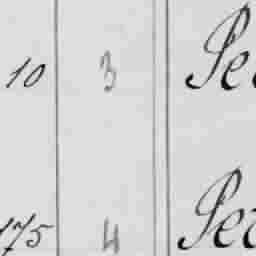 10 3 Pe
175 4 Pet